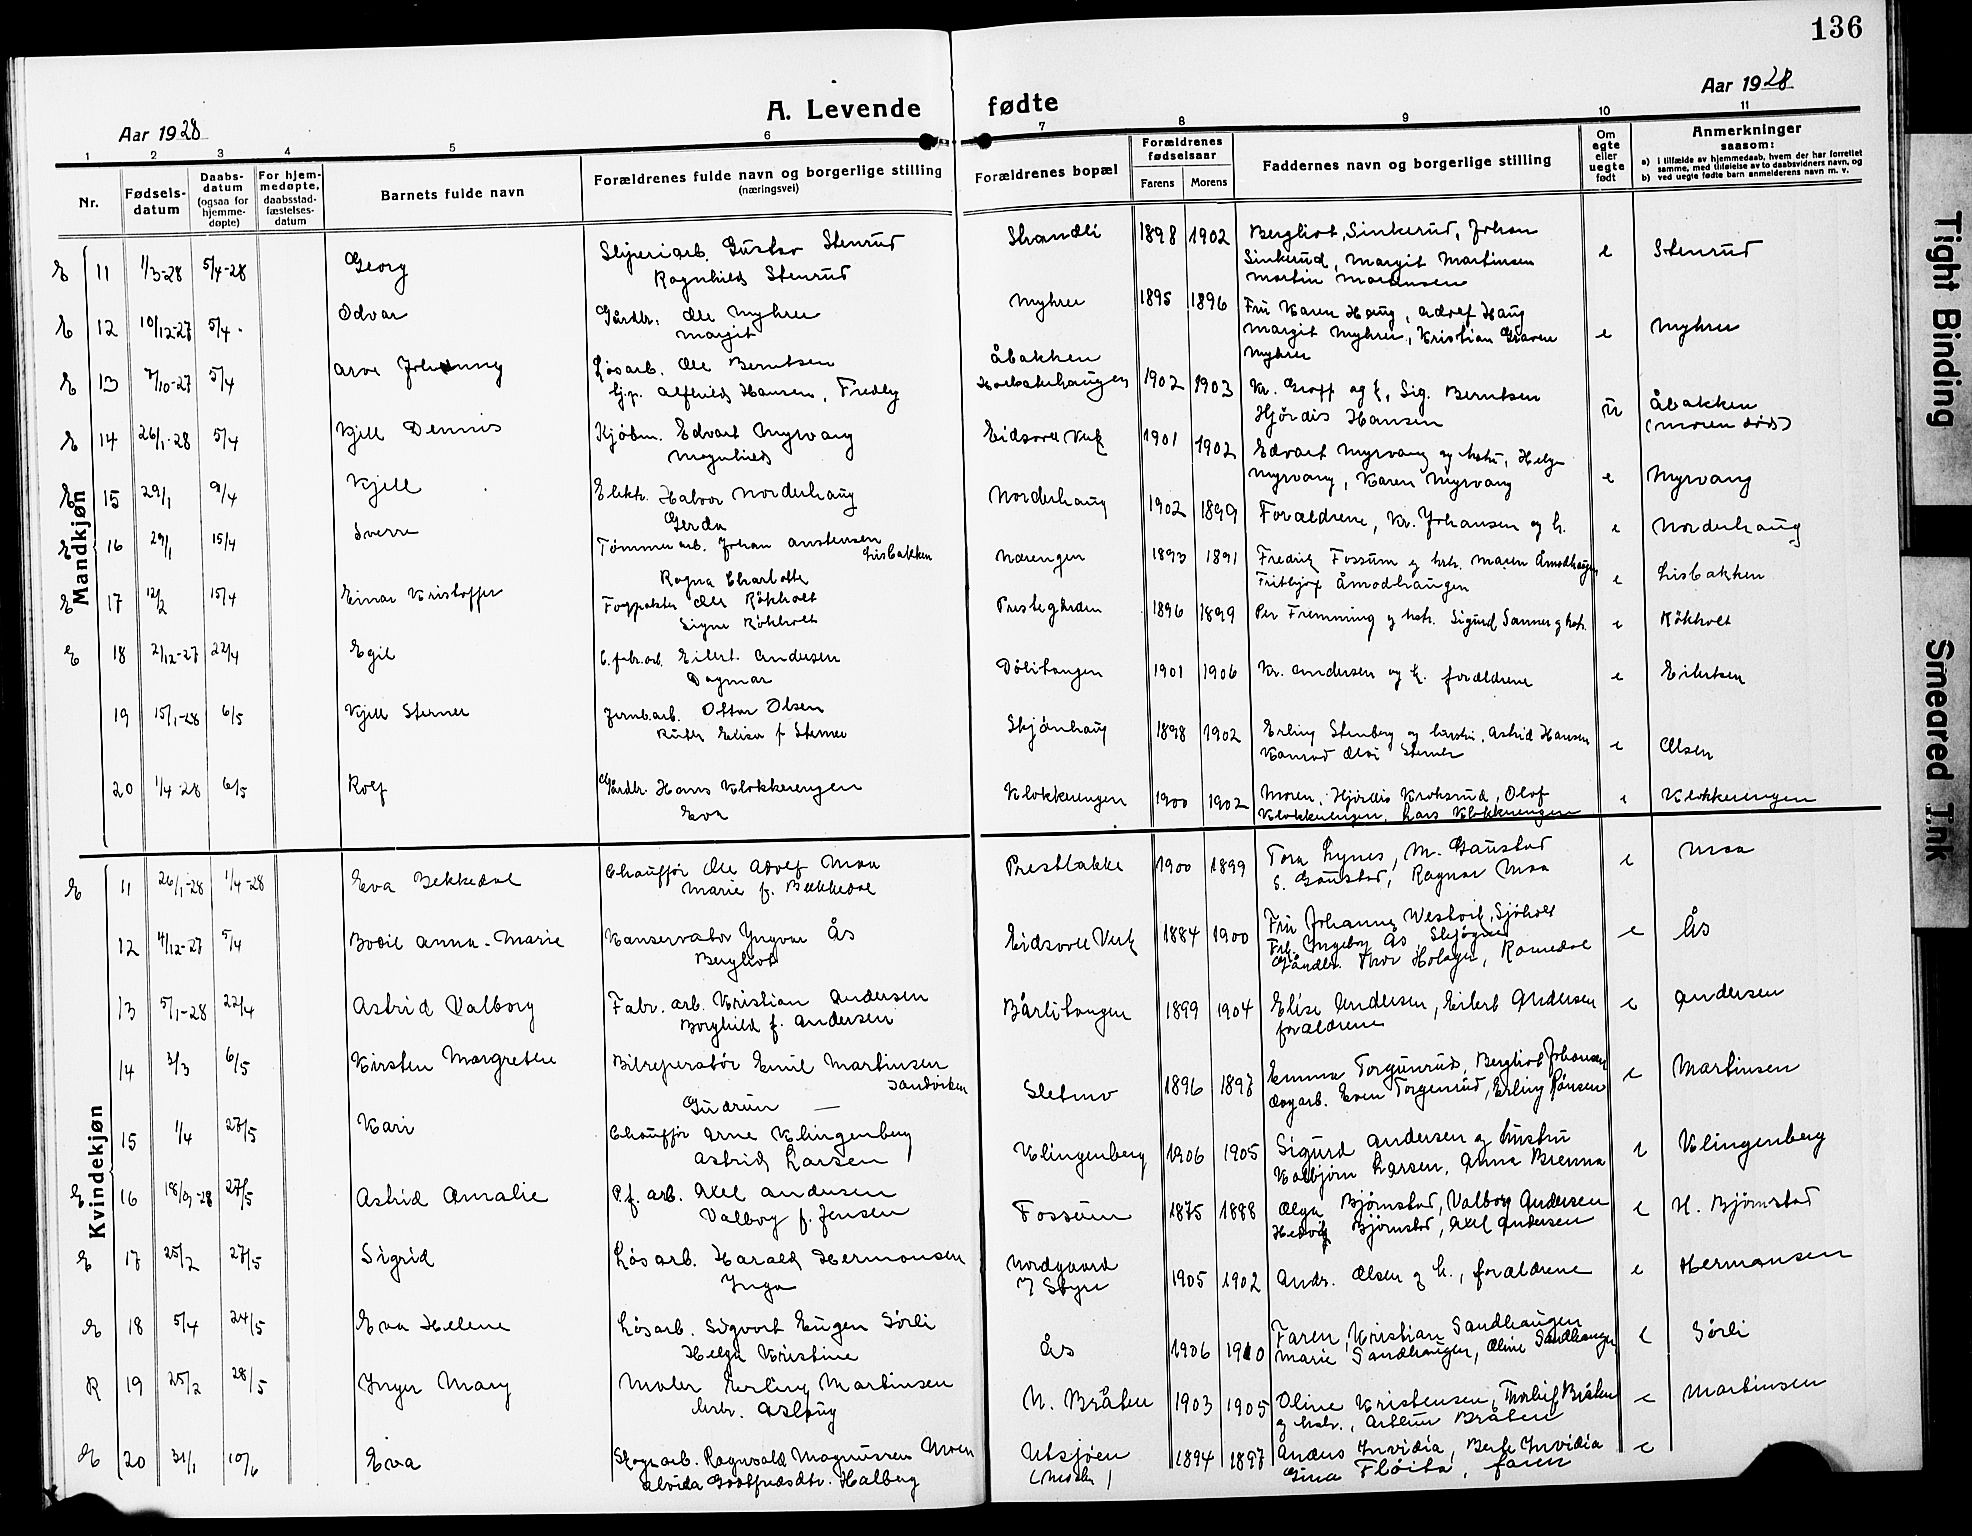 136
A. Levende fødte
Aar 1928
Aar 1928
1 2 3 4 5 6 7 8 9 10 11
Nr.
Fødsels-datum
Daabs-datum (ogsaa for hjemme-døpte)
For hjem-medøpte, daabsstad-fæstelses-datum
Barnets fulde navn
Forældrenes fulde navn og borgerlige stilling (næringsvei)
Forældrenes bopæl
Forældrenes fødselsaar
Farens Morens
Faddernes navn og borgerlige stilling
Om egte eller uegte født
Anmerkninger saasom:
a) i tilfælde av hjemmedaab, hvem der har forrettet samme, med tilføielse av to daabsvidners navn, og
b) ved uegte fødte barn anmelderens navn m. v.
Mandkjøn
E 11 1/3-28 5/4-28 Georg Sliperiarb. Gustav Stenrud Strandli 1898 1902 Bergliot Sinkerud, Johan e Stenrud
Ragnhild Stenrud Sinkerud, Margit Martinsen
Martin Martinsen
E 12 10/12-27 5/4 - Odvar Gårdbr. Ole Myhrer Myhrer 1895 1896 Fru Karen Haug, Adolf Haug e Myhrer
Margit Margit Myhrer, Kristian Graven
Myhrer
E 13 7/10-27 5/4 Arve Johnny Løsarb. Ole Berntsen Åbakken 1902 1903 Kr. Groff og h, Sig. Berntsen u Åbakken
Hj.p. Alfhild Hansen, Fredly Hjørdis Hansen (moren død)
E 14 26/1-28 5/4 Kjell Dennis Kjøbm. Edvart Myrvang Eidsvoll Verk 1901 1902 Edvart Myrvang og hstr, Helge e Myrvang
Magnhild Myrvang, Karen Myrvang
E 15 29/1 9/4 Kjell Elektr. Halvor Norderhaug Norderhaug 1902 1899 Forældrene, Kr. Johansen og h. e Norderhaug
Gerda
E 16 29/1 15/4 Sverre Tømmerarb. Johan Anstensen Lisbakken Nærengen 1893 1891 Fredrik Fossum og hstr. Maren Åmodhaugen e Lisbakken
Ragna Charlotte Frithjof Åmodhaugen
E 17 12/2 15/4 Einar Kristoffer Ole Røkholt Prestegården 1896 1899 Per Fremming og hstr. Sigurd Sanner og hstr. e Røkholt
Signe Røkholt
E 18 2/12-27 22/4 Egil C.fabr.arb. Eilert Andersen Dølitangen 1901 1906 Kr. Andersen og h. forældrene e Eilertsen
Dagmar
19 15/1-28 6/5 Kjell Sterner Jernb.arb. Ottar Olsen Skjønhaug 1898 1902 Erling Stenberg og hustru, Astrid Hansen e Olsen
Ruth Elisa f. Sterner Konrad Sterner
20 1/4-28 6/5 Rolf Gårdbr. Hans Klokkerengen Klokkerengen 1900 1902 Moren, Hjördis Kroksrud, Olof e Klokkerengen
Eva Klokkerengen, Lars Klokkerengen
Kvindekjøn
E 11 26/1-28 1/4-28 Eva Bekkedal Chauffør Ole Adolf Moa Prestløkke 1900 1899 Tora Lynes, M. Gaustad e Moa
Marie f. Bekkedal S. Gaustad, Ragnar Moa
12 4/12-27 5/4 Bodil Anna-Marie Konservator Yngvar Ås Eidsvoll Verk 1884 1900 Fru Johanne Westvik, Sjøholt e Ås
Bergliot Frk. Ingeborg Ås, Skjøgne
Gårdbr. Thor Holager, Romedal
13 5/1-28 22/4 Astrid Valborg Fabr. arb. Kristian Andersen Bårlitangen 1899 1904 Elise Andersen, Eilert Andersen e Andersen
Borghild f. Andersen forældrene
14 3/3 6/5 Kirsten Margrethe Bilreperatør Emil Martinsen Sandviken Sletmo 1896 1897 Emma Torgunrud, Bergliot Johansen e Martinsen
Gudrun — Dagarb. Even Torgenrud, Erling Rønsen
15 1/4 27/5 Kari Chauffør Arne Klingenberg Klingenberg 1906 1905 Sigurd Andersen og hustru e Klingenberg
Astrid Larsen Kolbjørn Larsen, Anna Brenna
E 16 27/5 Astrid Amalie P.f. arb. Axel Andersen Fossum 1875 1888 Olga Bjørnstad, Valborg Andersen e H. Bjørnstad
Valborg f. Jensen Hedvig Bjørnstad, Axel Andersen
E 17 25/2 27/5 Sigrid Løsarb. Harald Hermansen Nordgaard 1905 1902 Andr. Olsen og h., forældrene e Hermansen
Inga
E 18 5/4 24/5 Eva Helene Løsarb. Sigvart Eugen Sørli Ås 1906 1910 Faren, Kristian Sandhaugen e Sørli
Helga Kristine Marie Sandhaugen, Oline Sandhaugen
R 19 25/2 28/5 Inger Mary Maler Erling Martinsen N. Bråten 1903 1905 Oline Kristensen, Thorleif Bråten e Martinsen
hstr. Aslaug og hstr., Arthur Bråten
E 20 31/1 10/6 Eva Skogsarb. Ragnvald Magnussen Moen Utsjøen 1894 1897 Anders Invidia, Berte Invidia e
Alvida Gottfredsdtr. Halberg Gina Fløita, faren
Tight Binding
Smeared Ink